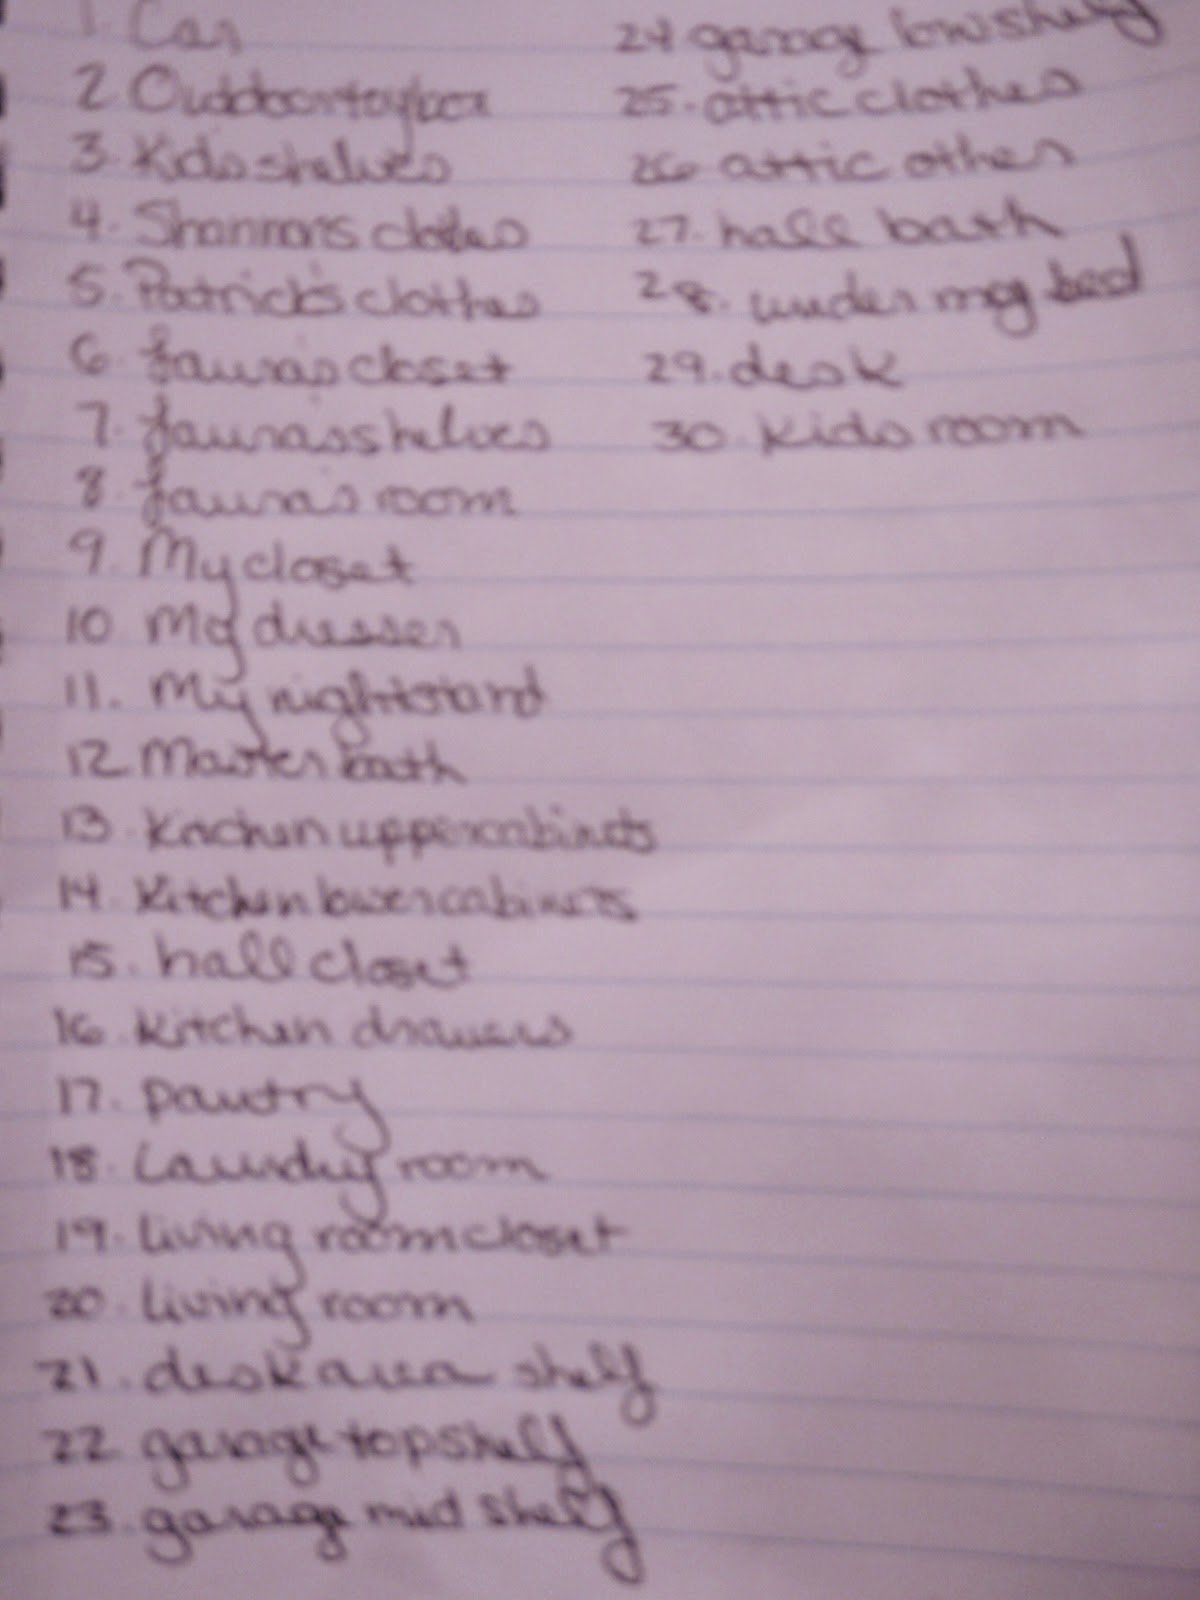 1. Car
2 Outdoor toy box
3. Kids shelves
4. Shannon's clothes
5. Patrick's clothes
6. Laura's closet
7. Laura's shelves
8. Laura's room
9. My closet
10 My dresser
11. My nightstand
12 Master bath
13. Kitchen upper cabinets
14. Kitchen lower cabinets
15. hall closet
16. Kitchen drawers
17. pantry
18. Laundry room
19. living room closet
20. living room
21. desk area shelf
22. garage top shelf
23. garage mid shelf
24 garage low shelf
25. attic clothes
26 attic other
27. hall bath
28. under my bed
29. desk
30. kids room